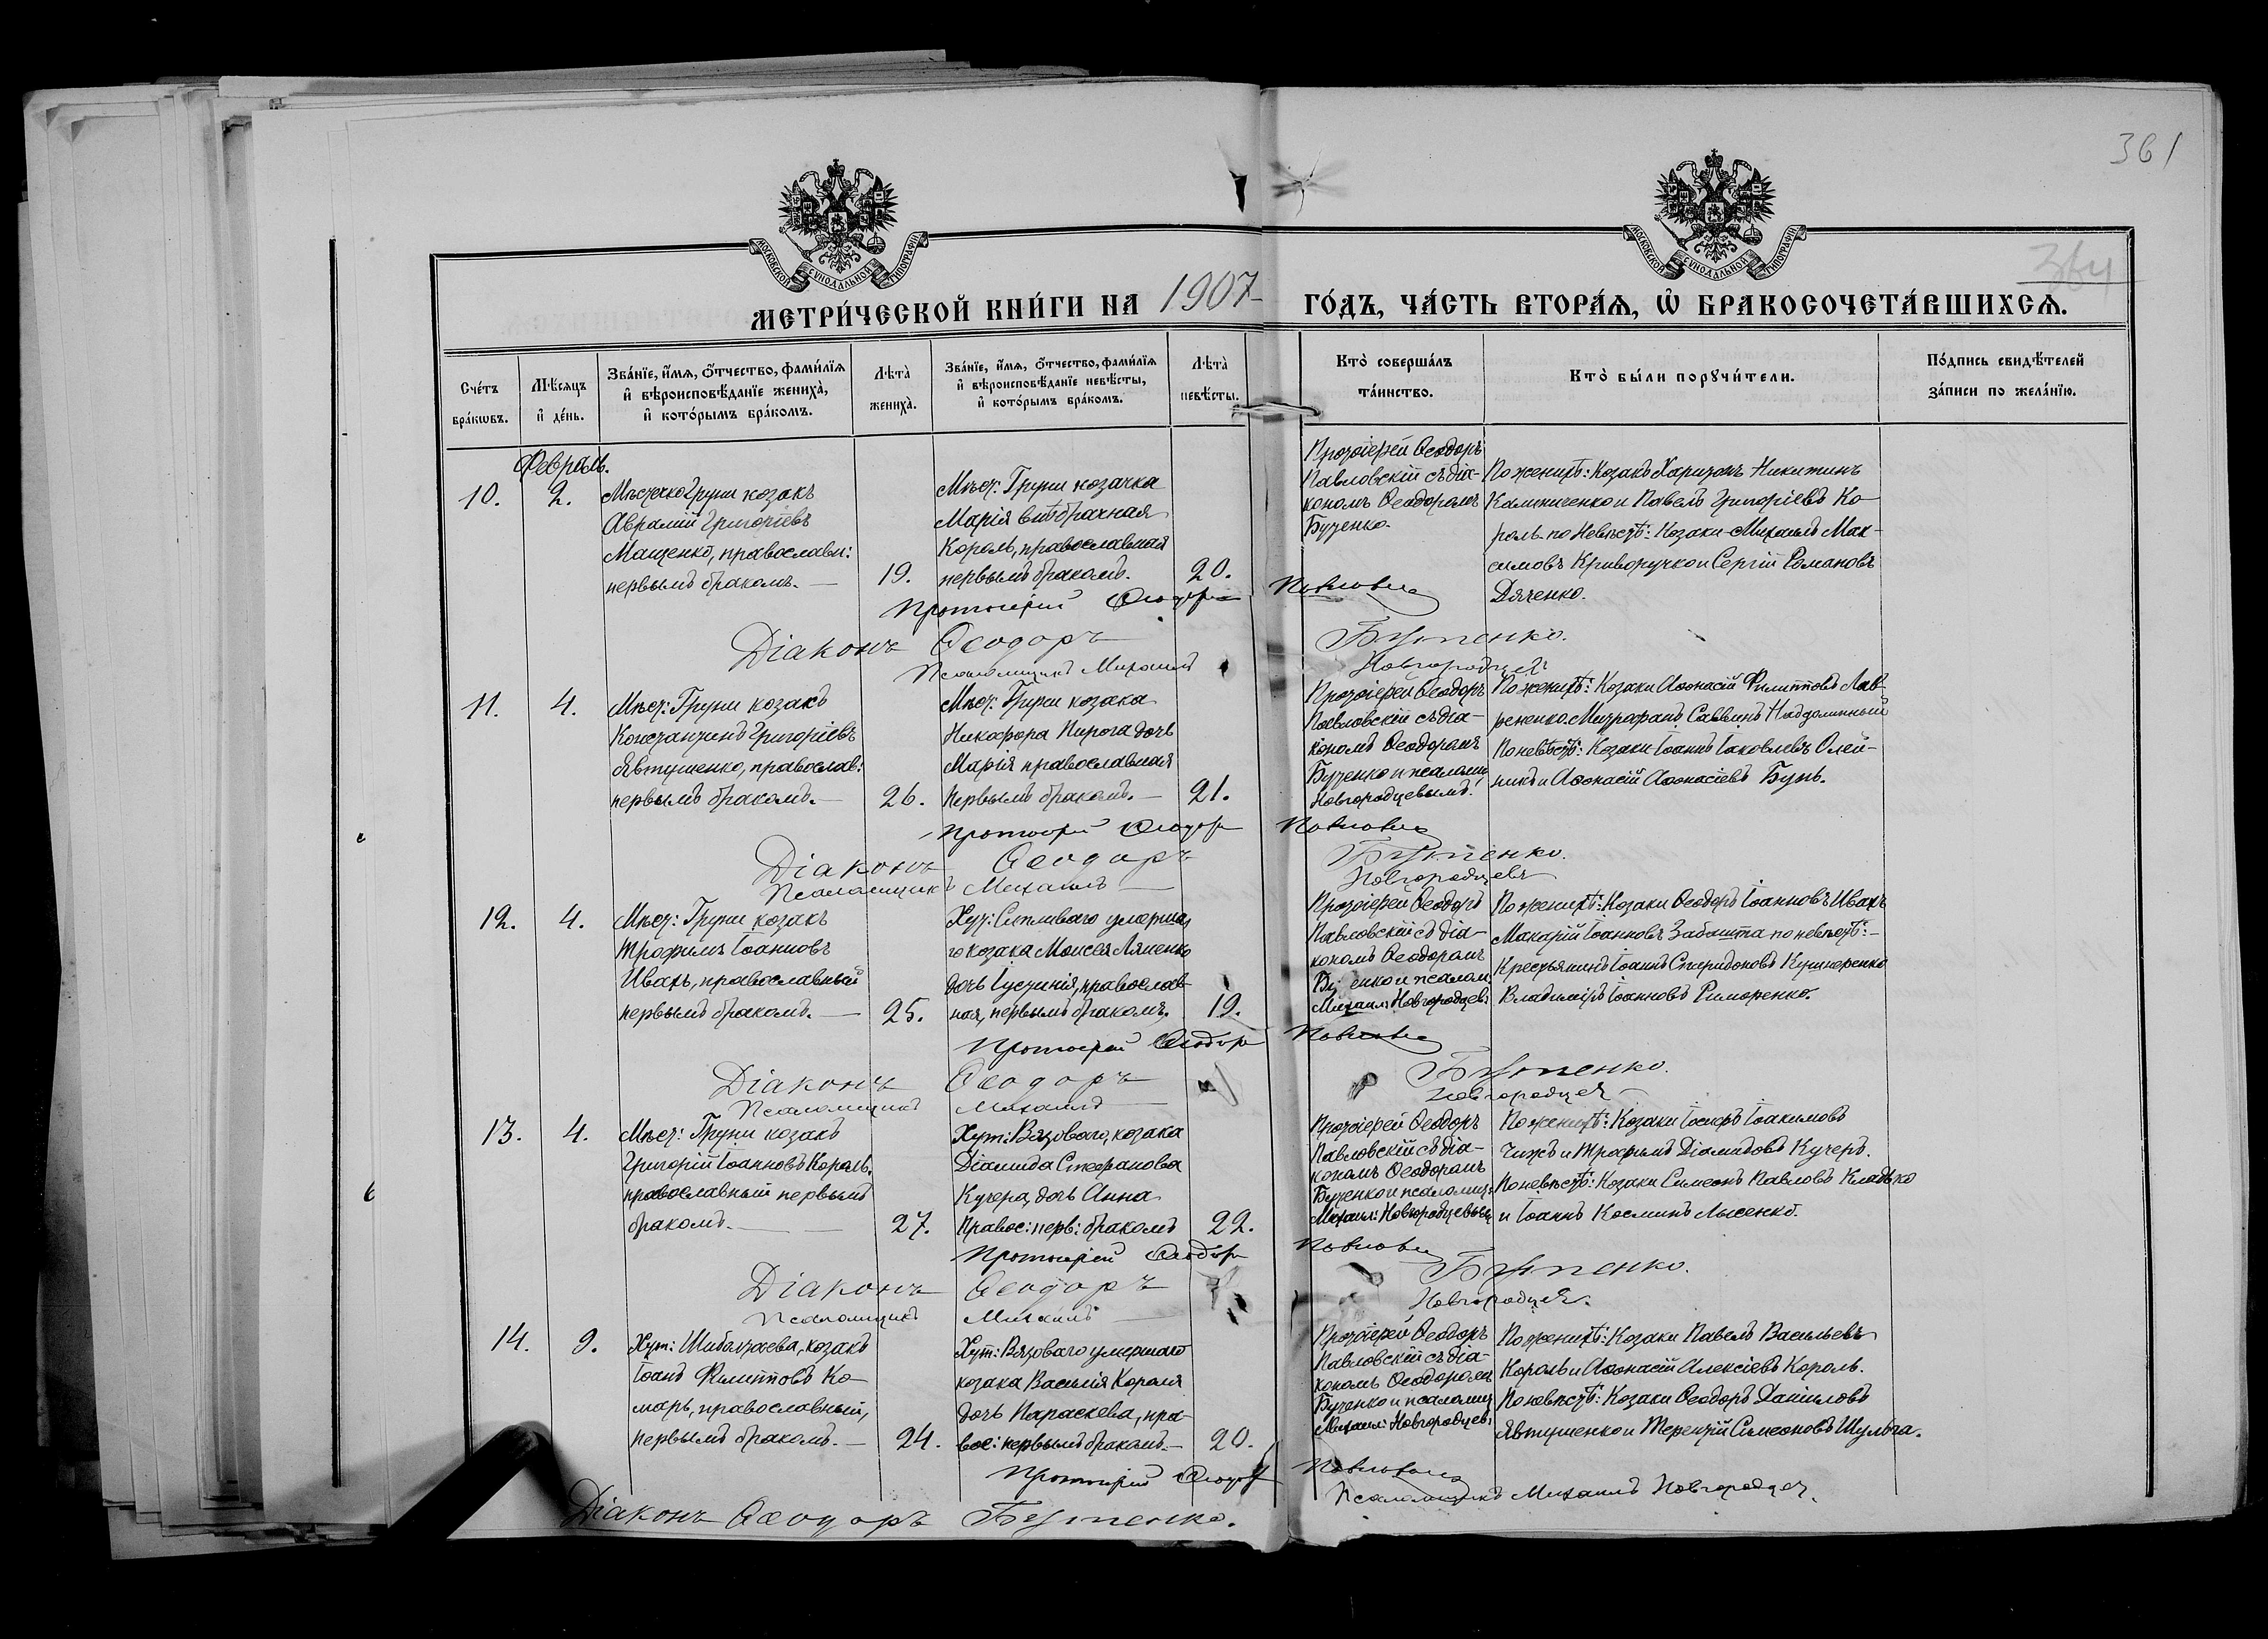 361
364
МОСКОВСКОЙ СѴНОДАЛЬНОЙ ТИПОГРАФІИ
МОСКОВСКОЙ СѴНОДАЛЬНОЙ ТИПОГРАФІИ
МЕТРИ́ЧЕСКОЙ КНИ́ГИ НА 1907 ГО́ДЪ, ЧА́СТЬ ВТОРА́Ѧ, Ѽ БРАКОСОЧЕТА́ВШИХСѦ.
Сче́тъ бра́кѡвъ.
Мѣ́сѧцъ и҆ де́нь.
Зва́нїе, и҆́мѧ, ѻ҆́тчество, фами́лїѧ и҆ вѣроисповѣ́данїе жениха̀, и҆ кото́рымъ бра́комъ.
Лѣ́та̀ жениха̀.
Зва́нїе, и҆́мѧ, ѻ҆́тчество, фами́лїѧ и҆ вѣроисповѣ́данїе невѣ́сты, и҆ кото́рымъ бра́комъ.
Лѣ́та̀ невѣ́сты.
Кто̀ соверша́лъ та́инство.
Кто̀ бы́ли порꙋчи́тели.
По́дпись свидѣ́телей за́писи по жела́нїю.
Февраль.
10.
2.
Мѣстечко Груни козакъ
Аврамій Григоріевъ
Мащенко, православн:
первымъ бракомъ. —
19.
Мѣст: Груни козачка
Марія внѣбрачная
Король, православная
первымъ бракомъ.
20.
Протоіерей Ѳеодоръ
Павловскій съ діа-
кономъ Ѳеодоромъ
Бутенко.
По женихѣ: Козакъ Харитонъ Никитинъ
Калиниченко и Павелъ Григоріевъ Ко-
роль по Невѣстѣ: Козаки Михаилъ Мак-
симовъ Криворучко и Сергій Романовъ
Дяченко.
Протоіерей Ѳеодоръ Павловскій
Діаконъ Ѳеодоръ Бутенко.
Псаломщикъ Михаилъ Новгородцевъ
11.
4.
Мѣст: Груни козакъ
Константинъ Григоріевъ
Явтушенко, православ:
первымъ бракомъ. —
26.
Мѣст: Груни козака
Никифора Пирога дочь
Марія православная
Первымъ бракомъ. —
21.
Протоіерей Ѳеодоръ
Павловскій съ діа-
кономъ Ѳеодоромъ
Бутенко и псаломщ
Новгородцевымъ.
По женихѣ: Козаки Аѳонасій Филипповъ Лав-
рененко Митрофанъ Саввинъ Наддолинный
По невѣстѣ: Козаки Іоаннъ Іаковлевъ Олей-
никъ и Аѳонасій Аѳонасіевъ Бунь.
Протоіерей Ѳеодоръ Павловскій
Діаконъ Ѳеодоръ Бутенко.
Псаломщикъ Михаилъ Новгородцевъ
12.
4.
Мѣст: Груни козакъ
Трофимъ Іоанновъ
Ивахъ, православный
первымъ бракомъ. —
25.
Хут: Сипливаго умерша
го козака Моисея Ляшенко
дочь Іустинія, православ-
ная, первымъ бракомъ.
19.
Протоіерей Ѳеодоръ
Павловскій съ діа-
кономъ Ѳеодоромъ
Бутенко и псалом.
Михаил: Новгородцев:
По женихѣ: Козаки Ѳеодоръ Іоанновъ Ивахъ
Макарій Іоанновъ Забашта по невѣстѣ: -
Крестьянинъ Іоаннъ Спиридоновъ Кушнеренко
Владиміръ Іоанновъ Римаренко.
Протоіерей Ѳеодоръ Павловскій
Діаконъ Ѳеодоръ Бутенко.
Псаломщикъ Михаилъ Новгородцевъ
13.
4.
Мѣст: Груни козакъ
Григорій Іоанновъ Король.
православный первымъ
бракомъ. —
27.
Хут: Вязоваго, козака
Діамида Стефанова
Кучера, дочь Анна
Правос: перв: бракомъ
22.
Протоіерей Ѳеодоръ
Павловскій съ діа-
кономъ Ѳеодоромъ
Бутенко и псаломщ:
Михаил: Новгородцевым
По женихѣ: Козаки Іосифъ Іоакимовъ
Чижъ и Трофимъ Діамидовъ Кучеръ.
По невѣстѣ: Козаки Симеонъ Павловъ Кладько
и Іоаннъ Косминъ Лысенко.
Протоіерей Ѳеодоръ Павловскій
Діаконъ Ѳеодоръ Бутенко.
Псаломщикъ Михаилъ Новгородцевъ.
14.
9.
Хут: Шибалтаева, козакъ
Іоанъ Филипповъ Ко-
марь, православный,
первымъ бракомъ. —
24.
Хут: Вязоваго умершаго
козака Василія Короля
дочь Параскева, пра-
вос: первымъ бракомъ. —
20.
Протоіерей Ѳеодоръ
Павловскій съ діа-
кономъ Ѳеодоромъ
Бутенко и псаломщ
Михаил: Новгородцев:
По женихѣ: Козаки Павелъ Васильевъ
Король и Аѳонасій Алексіевъ Король.
По невѣстѣ: Козаки Ѳеодоръ Даніиловъ
Явтушенко и Терентій Симеоновъ Шульга.
Протоіерей Ѳеодоръ Павловскій
Псаломщикъ Михаилъ Новгородцев.
Діаконъ Ѳеодоръ Бутенко.